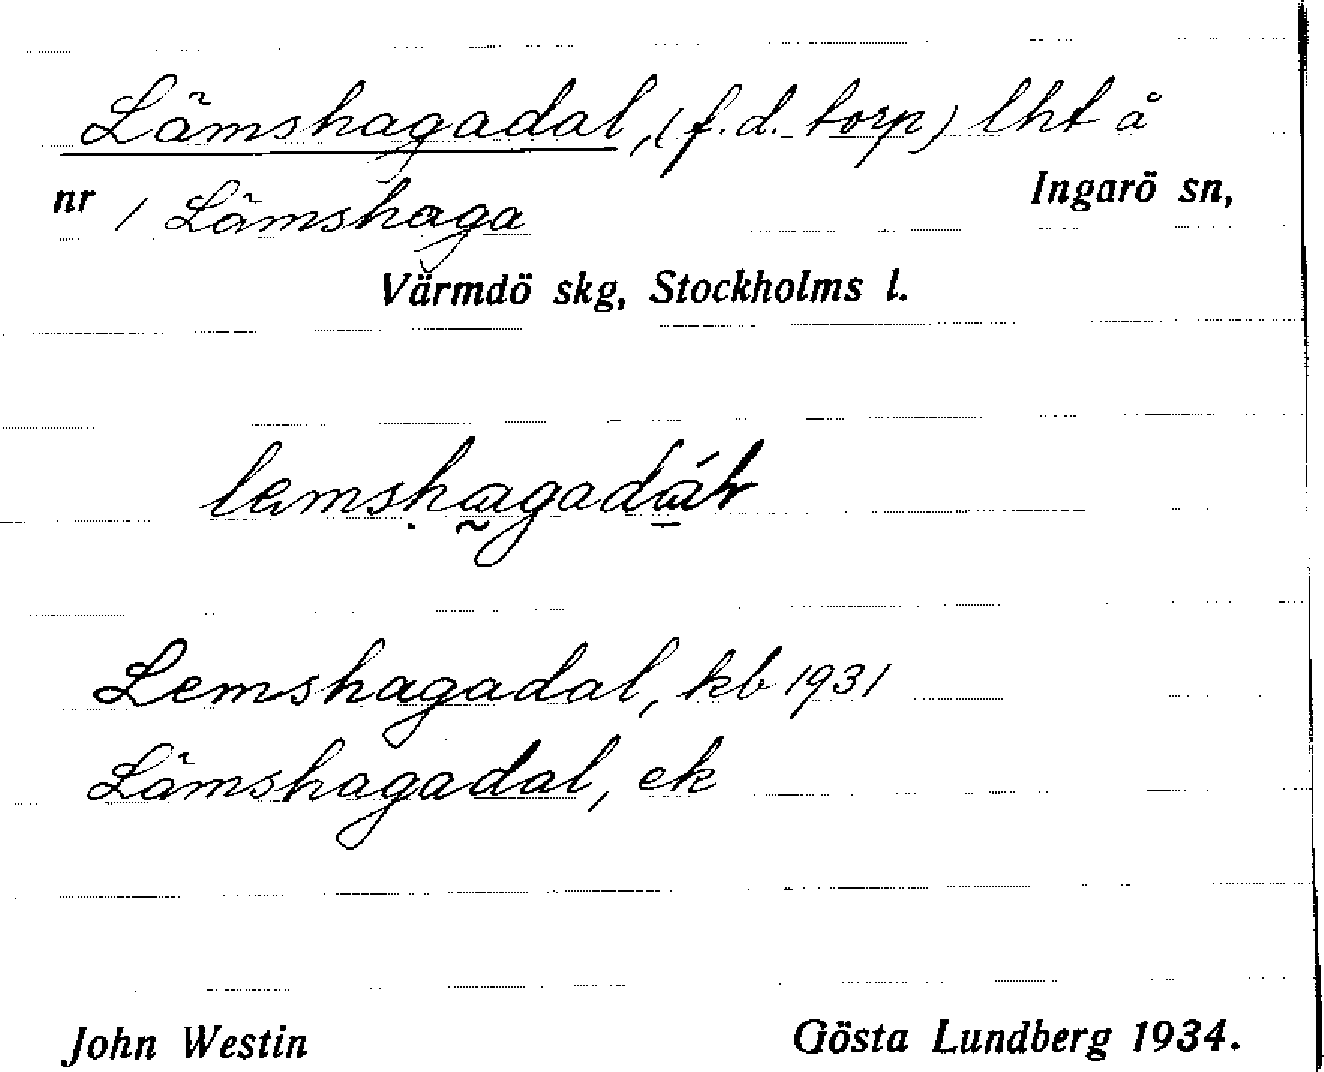 Lämshagadal, (f.d. torp) lht å
nr 1 Lämshaga
Ingarö sn,
Värmdö skg, Stockholms l.
Lemshagadal, kb 1931
Lämshagadal, ek
John Westin
Gösta Lundberg 1934.